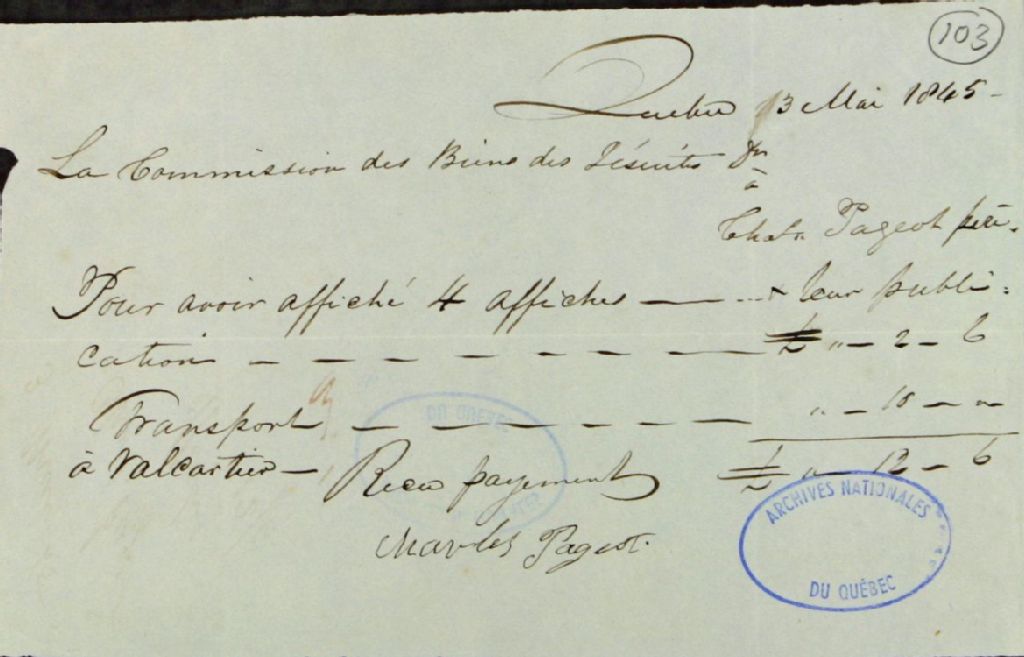 103
Quebec 13 Mai 1845 -
La Commission des Biens des Jésuites Dr
à
Chs Pageot père.
Pour avoir affiché 4 affiches — leur publi=
cation — — — — — — — £ " — 2 — 6
Transport — — — — — — " — 10 — "
à Valcartier — £ " — 12 — 6
Recu payement
Charles Pageot.
DU QUÉBEC
ARCHIVES NATIONALES
DU QUÉBEC